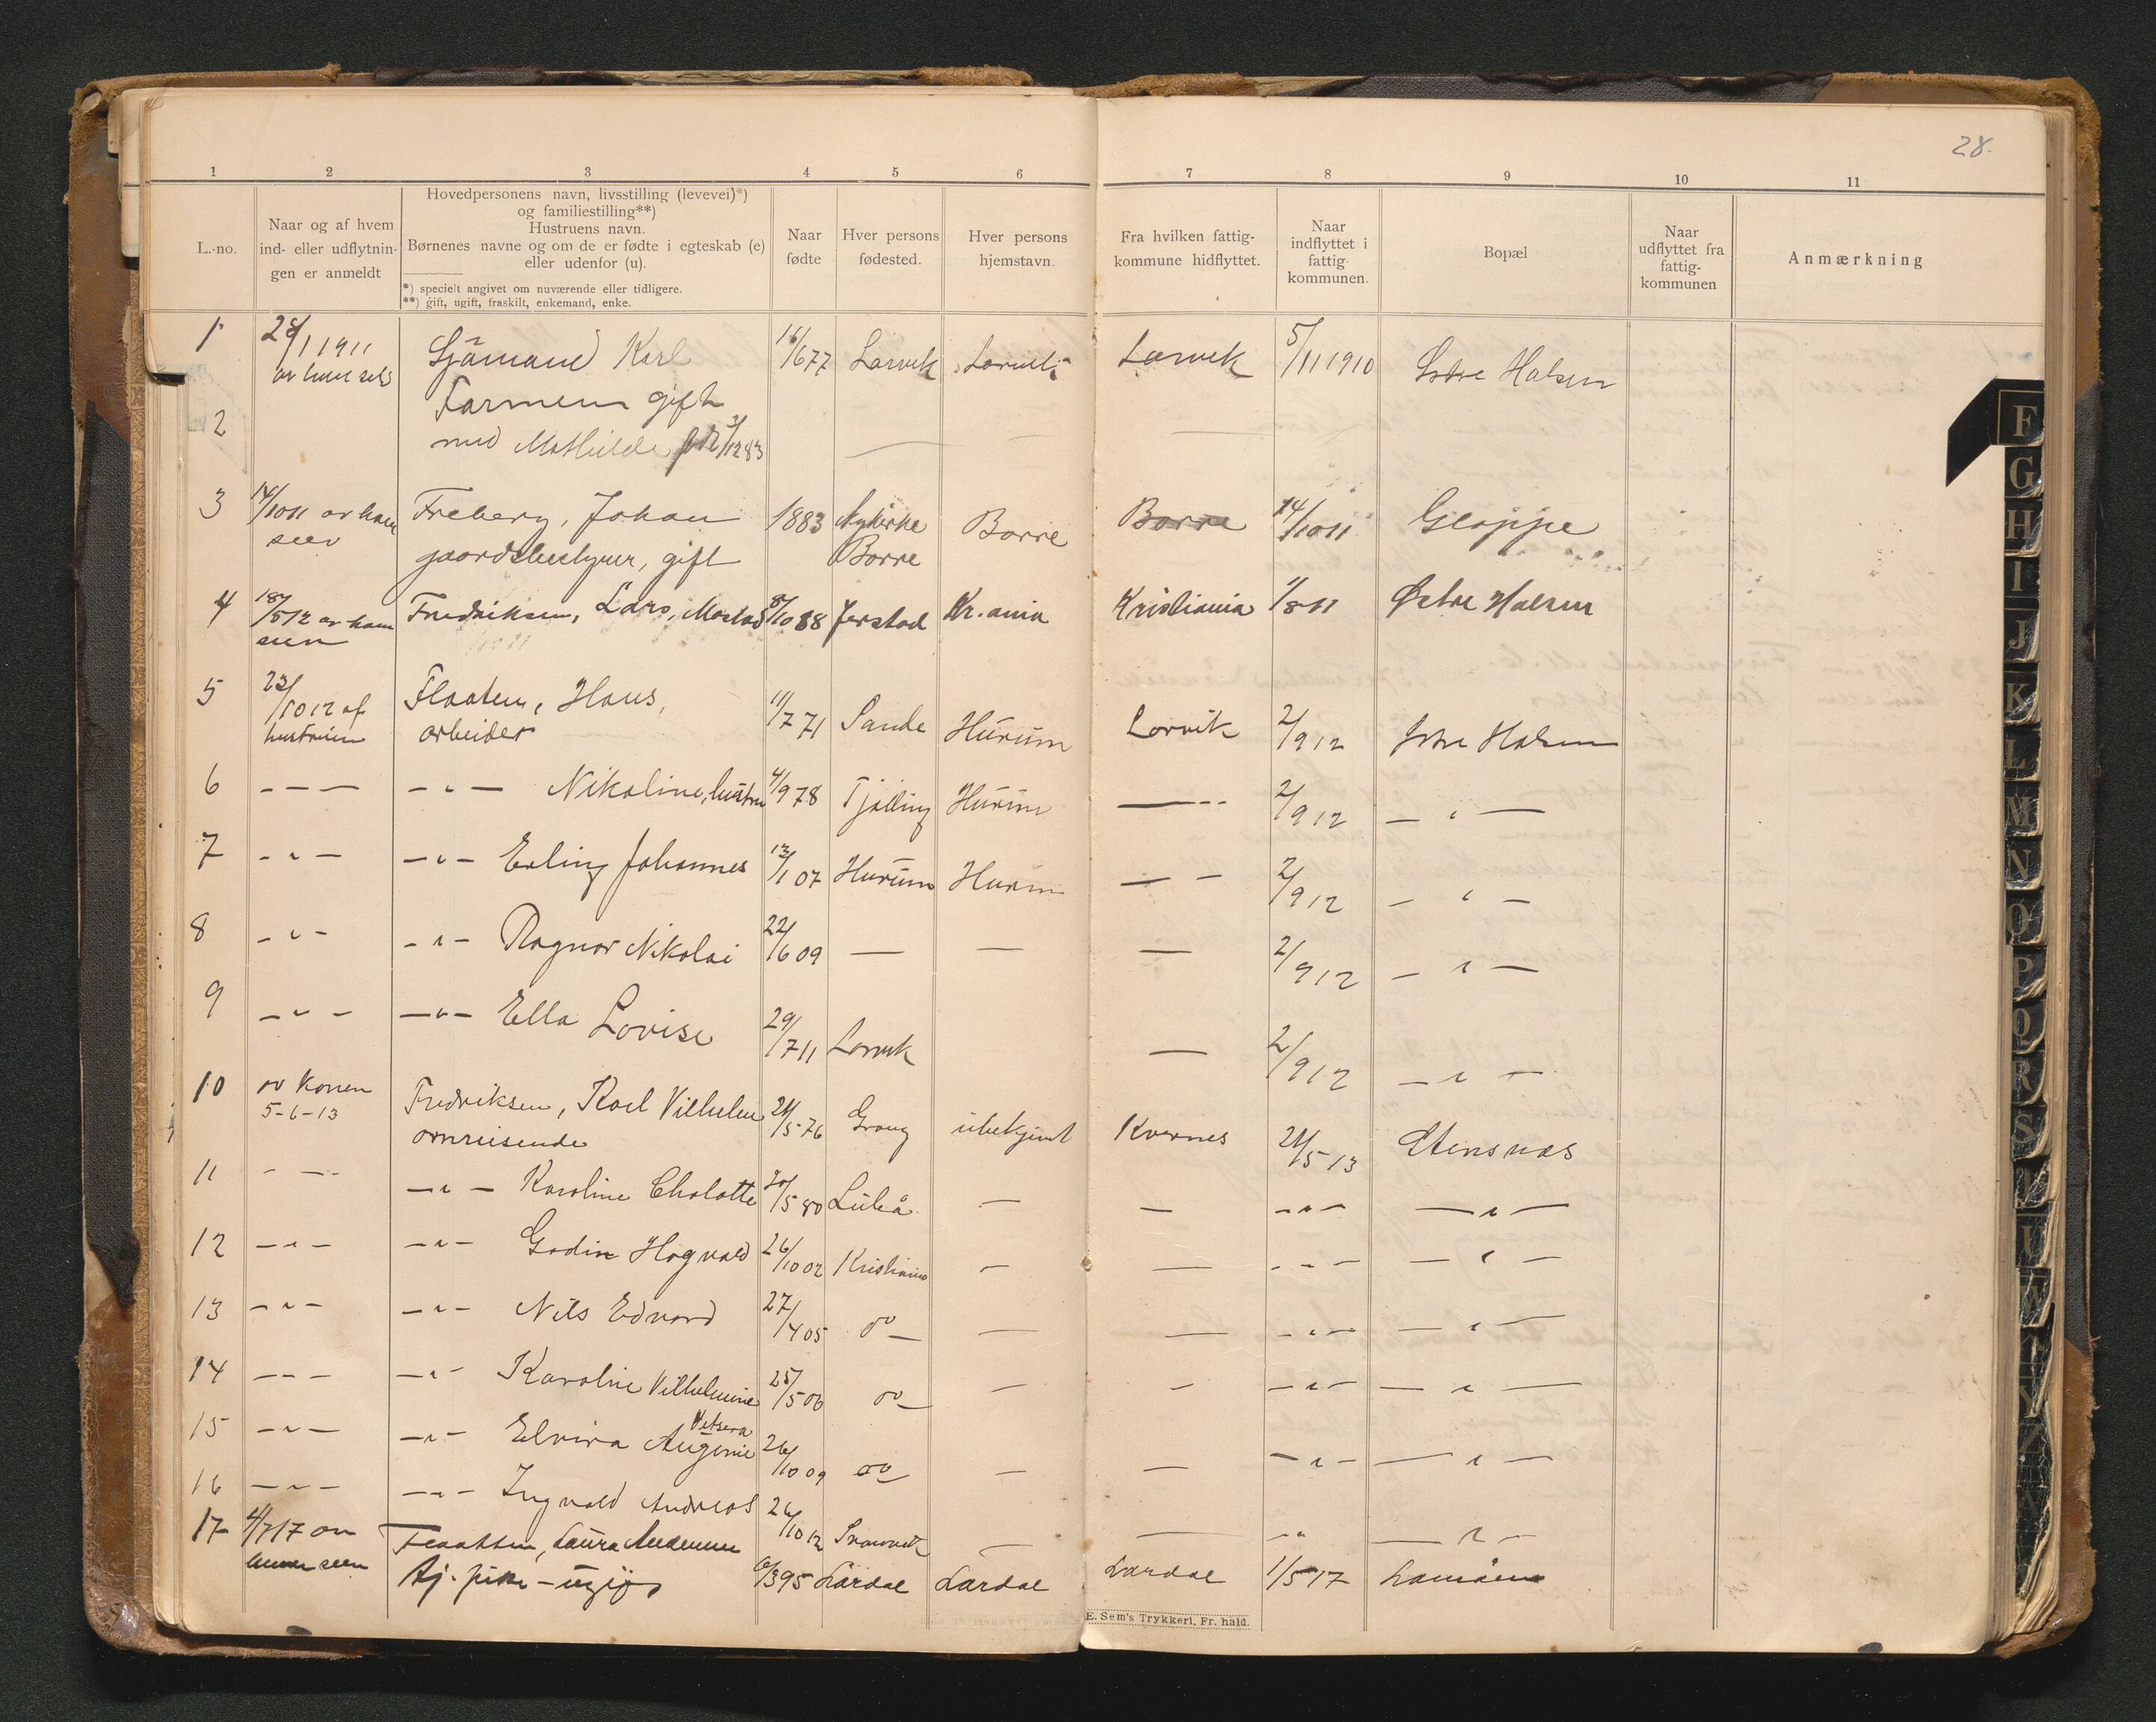 28.
1 2 3 4 5 6 7 8 9 10 11
L.-no.
Naar og af hvem
ind- eller udflytnin-
gen er anmeldt
Hovedpersonens navn, livsstilling (levevei)*)
og familiestilling**)
Hustruens navn.
Børnenes navne og om de er fødte i egteskab (e)
eller udenfor (u).
*) specielt angivet om nuværende eller tidligere.
**) gift, ugift, fraskilt, enkemand, enke.
Naar
fødte
Hver persons
fødested.
Hver persons
hjemstavn.
Fra hvilken fattig-
kommune hidflyttet.
Naar
indflyttet i
fattig-
kommunen.
Bopæl
Naar
udflyttet fra
fattig-
kommunen
Anmærkning
1 28/1 1911 Sjømand Karl 16/6 77 Larvik Larvik Larvik 5/11 1910 Østre Halsen
av ham selv
Farmen gift
2 med Mathilde 12 83 — — —
3 14/10 11 av ham Freberg, Johan 1883 Nykirke Borre Borre 14/10 11 Gloppe
selv gaardsbestyrer, gift Borre
4 18/5 12 av ham Fredriksen, Lars, 8/10 88 Jerstad Kr.ania Kristiania 1/8 11 Østre Halsen
selv
5 23/10 12 af Flaaten, Hans, 11/7 71 Sande Hurum Larvik 2/9 12 Østre Halsen
hustruen arbeider
6 — — — — " — Nikoline, hustru 4/9 78 Tjølling Hurum — 2/9 12 — " —
7 - " - — " — Erling Johannes 13/1 07 Hurum Hurum — - 2/9 12 — " —
8 - " - - " - Ragnar Nikolai 22/6 09 — — — 2/9 12 — " —
9 - " - — " — Ella Lovise 29/7 11 Larvik — 2/9 12 — " —
10 av Konen Fredriksen, Karl Vilhelm 21/5 76 Grong ubekjent Kvernes 21/5 13 Stensnæs
5-6-13 omreisende
11 - — - — " — Karoline Cholotte /5 80 Luleå — — - " - — " —
12 — " — — " — Godin Hagvald 26/10 02 Kristiania — — - - - — " —
13 — " — — " — Nils Edvard 27/4 05 do — — — - " - — " —
14 — - — — " — Karoline Vilhelmine 25/5 06 do — — - - " - — " —
15 — " — — " — Elvira Augenie 26/10 09 do — — - " - — " —
16 — - — — " — Ingvald Andreas 26/10 12 — — - " — " —
17 4/7 17 av Flaatten, Laura
selv Tj. pike - ugift 3 95 Lardal Lardal Lardal 1/5 17
E. Sem's Trykkeri, Fr.hald.
F
G
H
I
J
K
L
M
N
O
P
Q
R
S
U
W
Y
Z